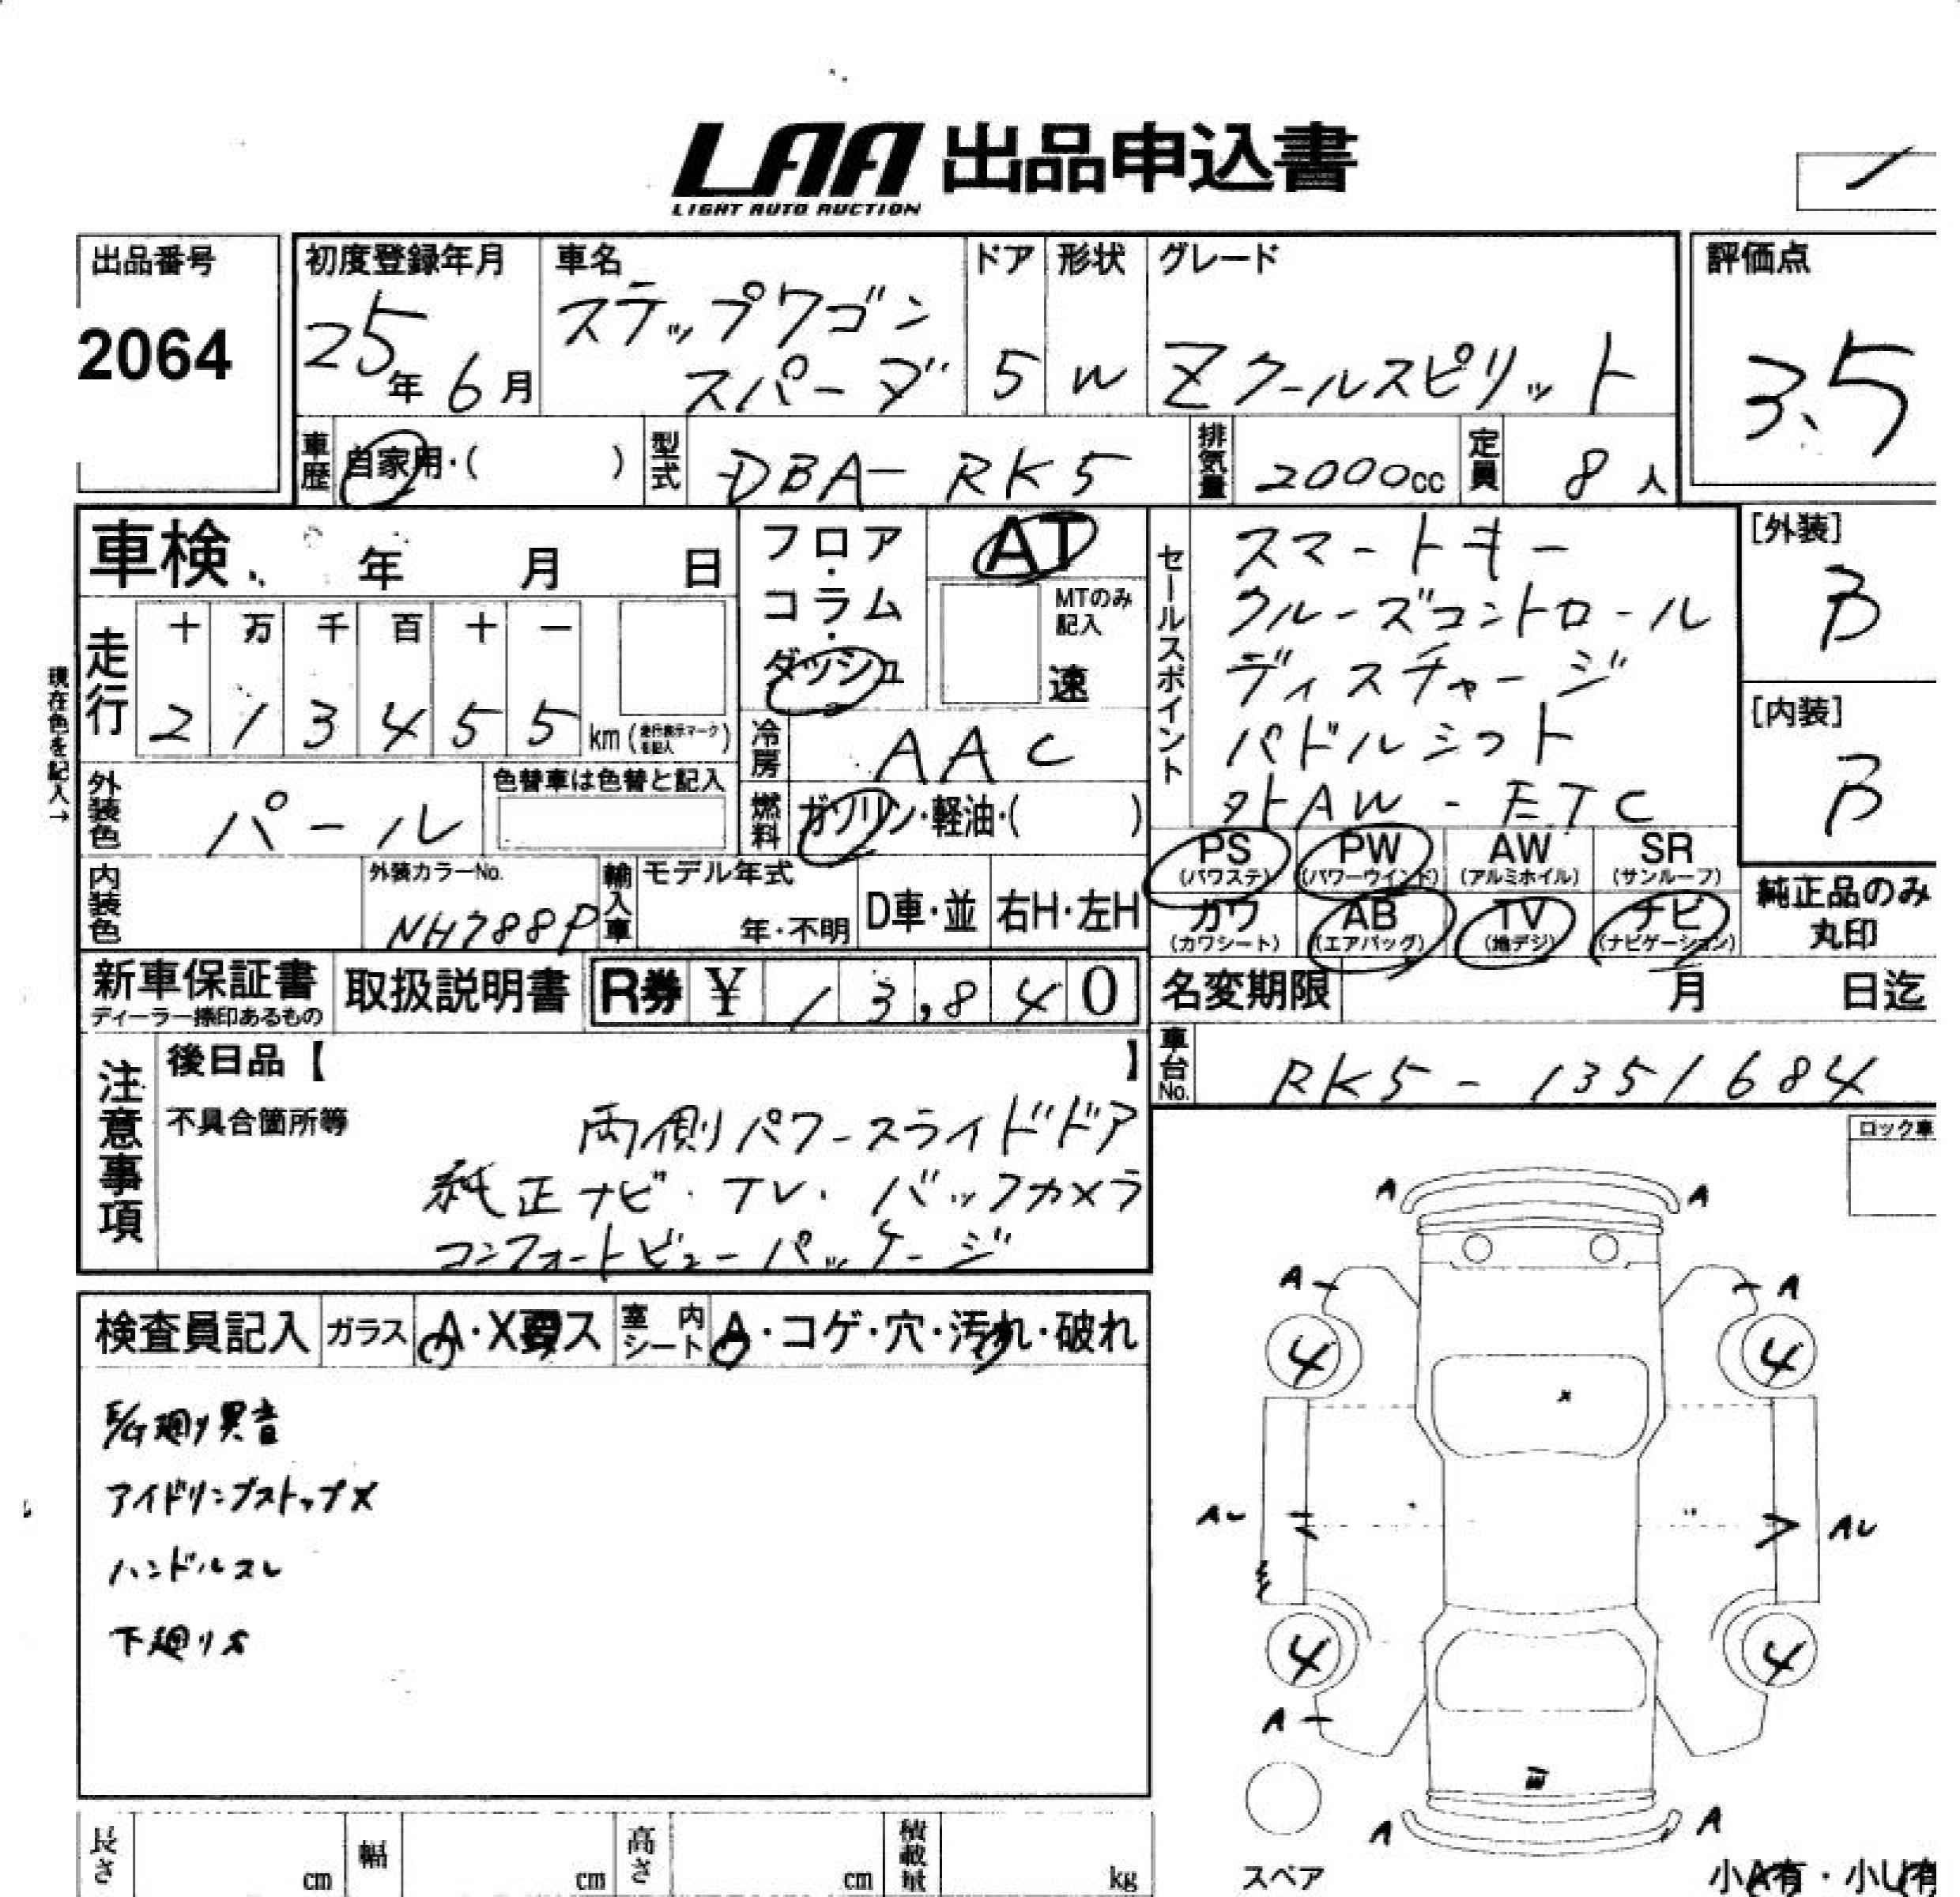 LAA 出品申込書
LIGHT AUTO AUCTION
出品番号
2064
初度登録年月
25年 6月
車名
ステップワゴン
スパーダ
ドア
5
形状
W
グレード
Zクールスピリット
評価点
3.5
車歴 自家用・( )
型式 DBA-RK5
排気量 2000cc
定員 8人
車検 年 月 日
フロア・コラム・ダッシュ
AT
MTのみ記入
速
セールスポイント
スマートキー
クルーズコントロール
ディスチャージ
パドルシフト
外AW-ETC
[外装]
B
[内装]
B
現在色を記入→
走行
十 万 千 百 十 一
2 1 3 4 5 5 km (走行表示マークを記入)
冷房 AAC
外装色 パール
色替車は色替と記入
燃料 ガソリン・軽油・( )
PS (パワステ)
PW (パワーウインド)
AW (アルミホイル)
SR (サンルーフ)
カワ (カワシート)
AB (エアバッグ)
TV (地デジ)
ナビ (ナビゲーション)
純正品のみ
丸印
内装色
外装カラーNo.
NH788P
輸入車
モデル年式
年・不明
D車・並
右H・左H
新車保証書
ディーラー捺印あるもの
取扱説明書
R券 ¥ 13,840
名変期限 月 日迄
車台No. RK5-1351684
注意事項
後日品【 】
不具合箇所等
両側パワースライドドア
純正ナビ・TV・バックカメラ
コンフォートビューパッケージ
ロック車
検査員記入
ガラス A・X要ス
室内シート A・コゲ・穴・汚れ・破れ
E/G廻り異音
アイドリングストップX
ハンドルスレ
下廻りS
A A
A A
4 4
AU AU
4 4
A
W
A A
スペア
長さ cm
幅 cm
高さ cm
積載量 kg
小A有・小U有